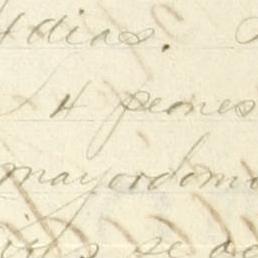 4 dias.
4 peones
mayordomo
se